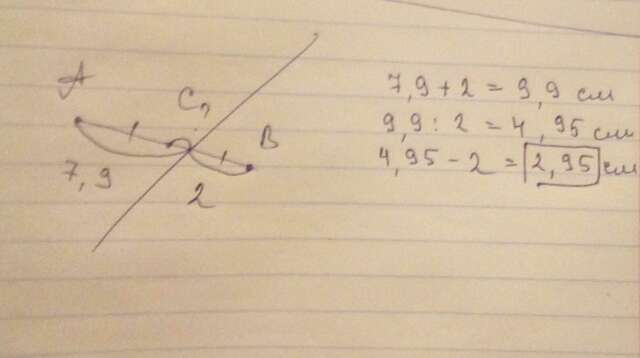 A
C,
B
7,9
2
7,9 + 2 = 9,9 см
9,9 : 2 = 4,95 см
4,95 - 2 = 2,95 см